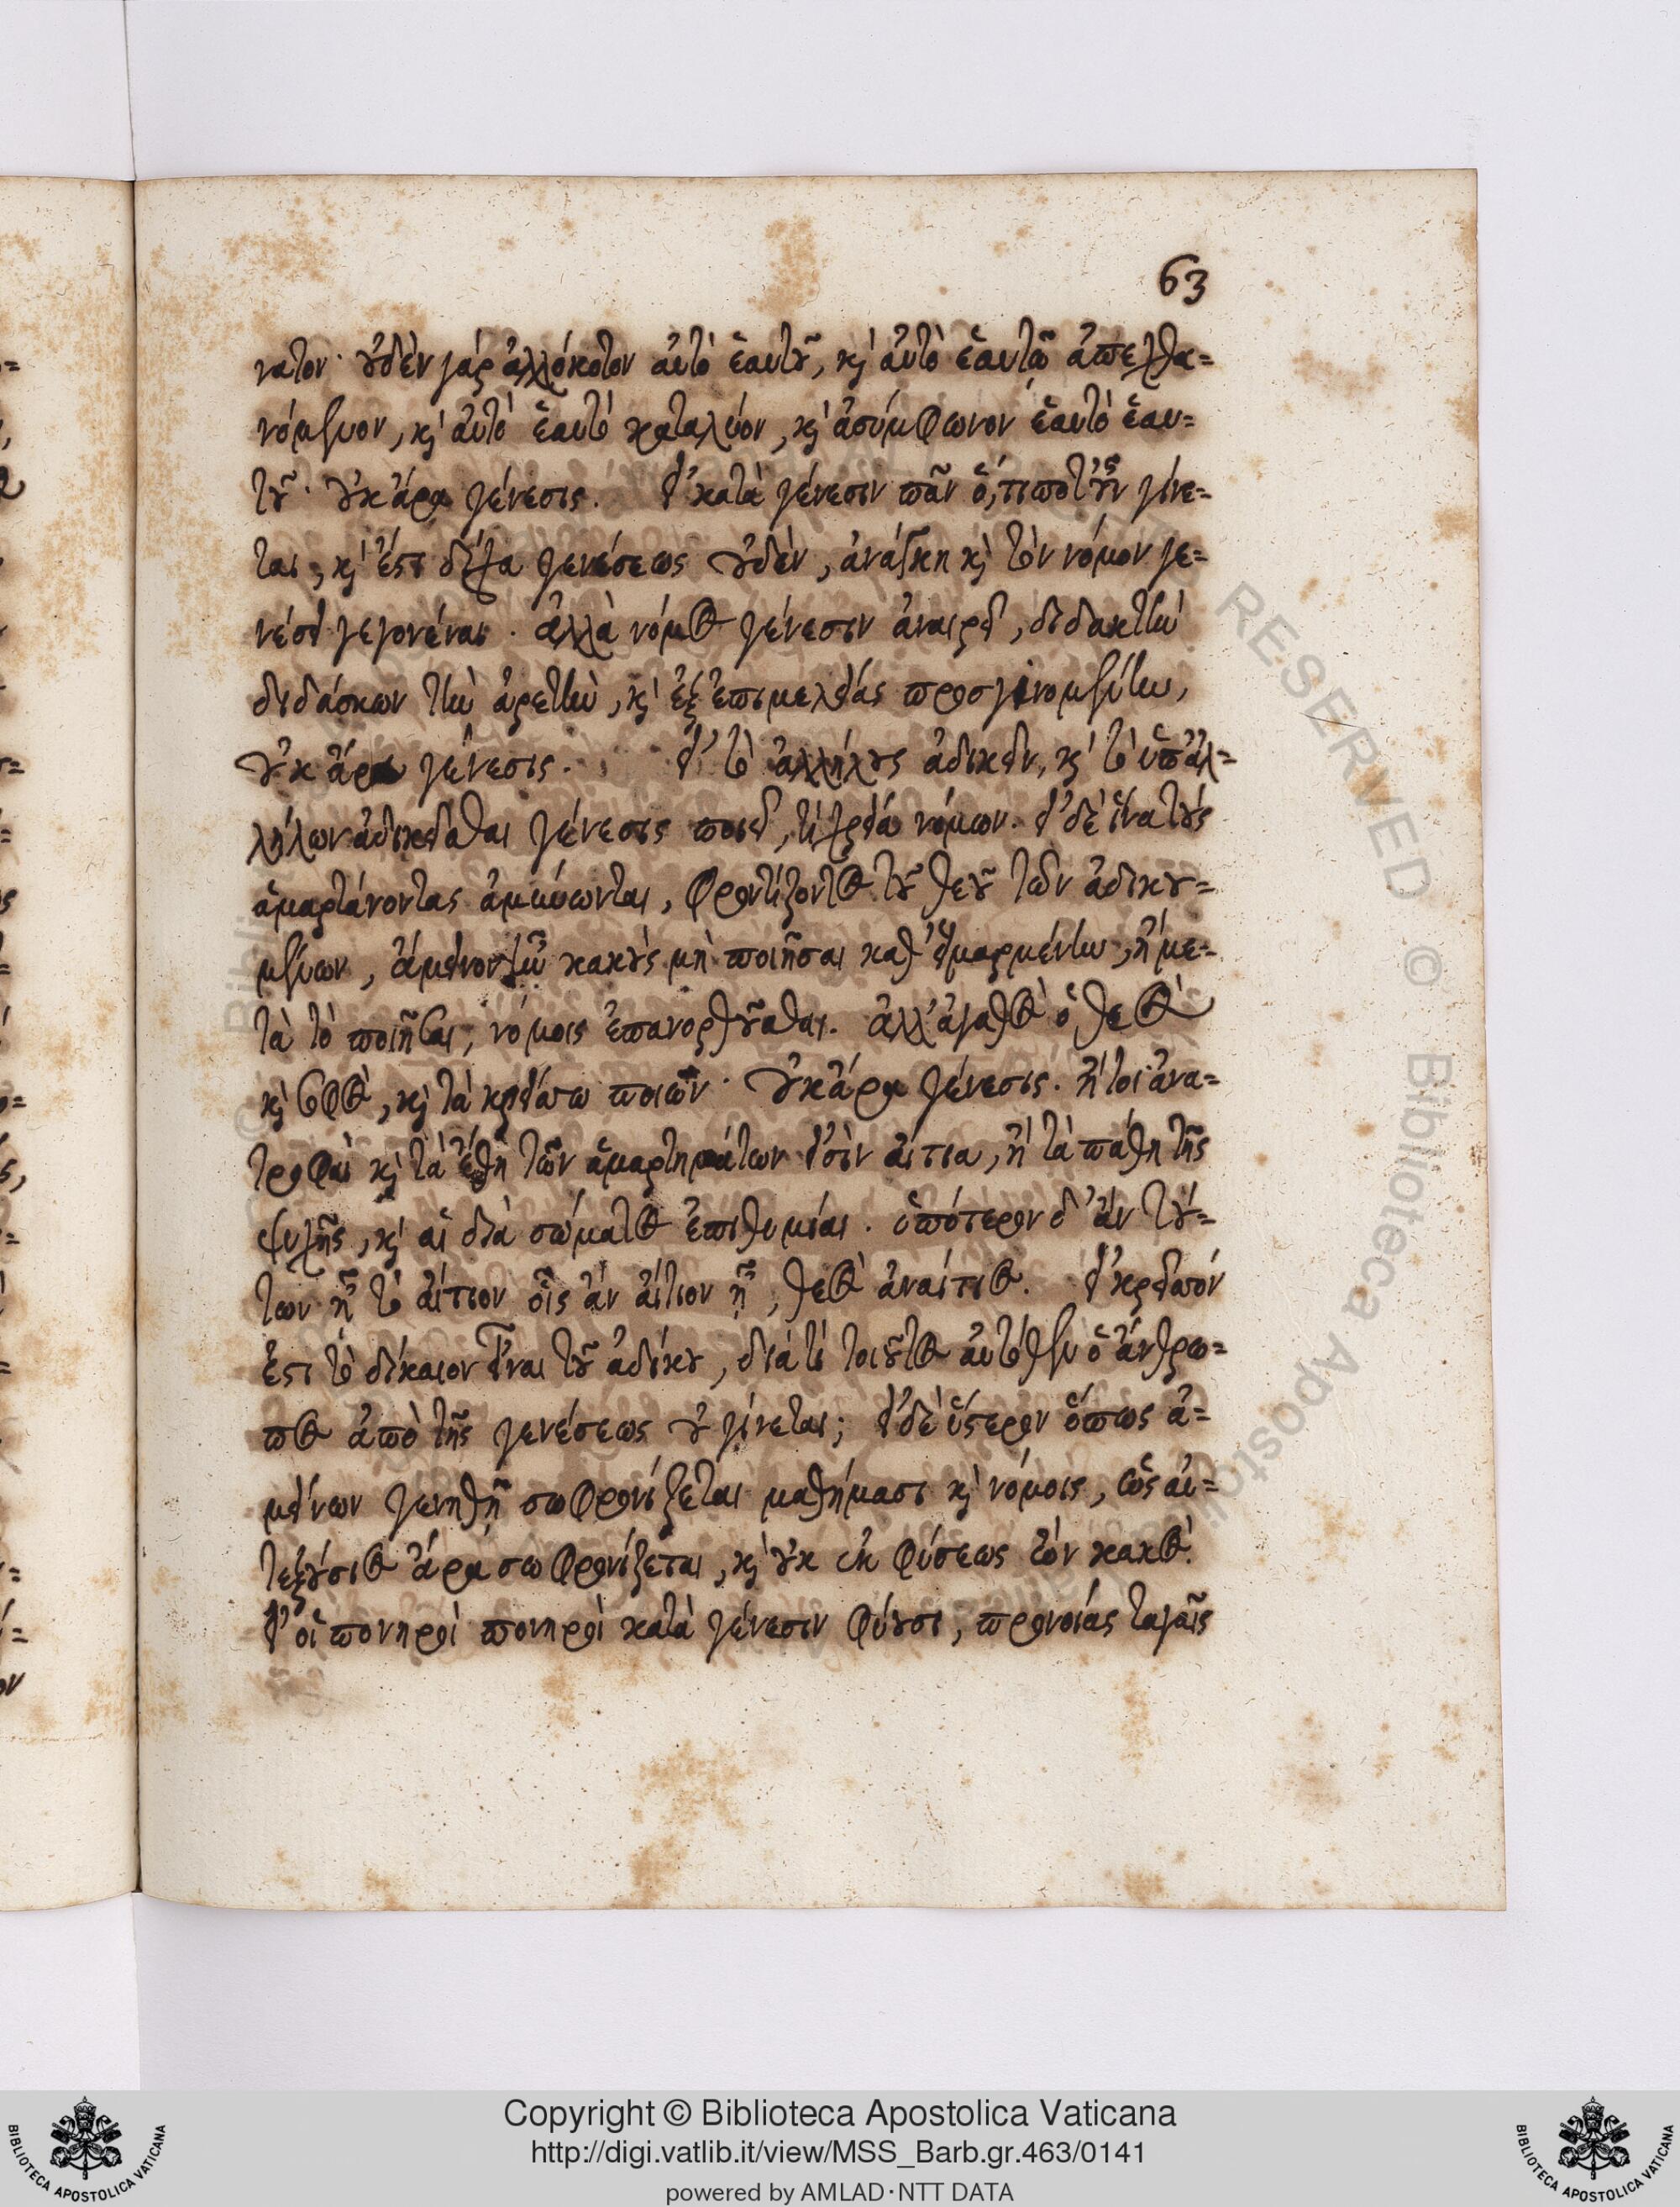 63
νατον· οὐδὲν γὰρ ἀλλόκοτον αὐτὸ ἑαυτοῦ, καὶ αὐτὸ ἑαυτῷ ἀπεχθα=
νόμενον, καὶ αὐτὸ ἑαυτὸ καταλύον, καὶ ἀσύμφωνον ἑαυτὸ ἑαυ=
τοῦ· οὐκ ἄρα γένεσις. εἰ κατὰ γένεσιν πᾶν ὅ,τιποτοῦν γίνε=
ται, καὶ ἔστι δίχα γενέσεως οὐδὲν, ἀνάγκη καὶ τὸν νόμον γε=
νέσει γεγονέναι. ἀλλὰ νόμος γένεσιν ἀναιρεῖ, διδακτὴν
διδάσκων τὴν ἀρετὴν, καὶ ἐξ ἐπιμελείας προσγινομένην,
οὐκ ἄρα γένεσις. εἰ τὸ ἀλλήλους ἀδικεῖν, καὶ τὸ ὑπ' ἀλ=
λήλων ἀδικεῖσθαι γένεσις ποιεῖ, τί χρεία νόμων. εἰ δὲ ἵνα τοὺς
ἁμαρτάνοντας ἀμύνωνται, φροντίζοντος τοῦ θεοῦ τῶν ἀδικου=
μένων, ἄμεινον ἦν κακοὺς μὴ ποιῆσαι καθ' εἱμαρμένην, ἢ με=
τὰ τὸ ποιῆσαι, νόμοις ἐπανορθοῦσθαι. ἀλλ' ἀγαθὸς ὁ θεὸς
καὶ σοφὸς, καὶ τὰ κρείττω ποιῶν· οὐκ ἄρα γένεσις. ἤτοι ἀνα=
τροφαὶ καὶ τὰ ἔθη τῶν ἁμαρτημάτων εἰσὶν αἴτια, ἢ τὰ πάθη τῆς
ψυχῆς, καὶ αἱ διὰ σώματος ἐπιθυμίαι. ὁπότερον δ' ἂν τού=
των ᾖ τὸ αἴτιον οἷς ἂν αἴτιον ᾖ, θεὸς ἀναίτιος. εἰ κρεῖττόν
ἐστι τὸ δίκαιον εἶναι τοῦ ἀδίκου, διὰ τί τοιοῦτος αὐτόθεν ὁ ἄνθρω=
πος ἀπὸ τῆς γενέσεως οὐ γίνεται; εἰ δὲ ὕστερον ὅπως ἀ=
μείνων γενηθῇ σωφρονίζεται μαθήμασι καὶ νόμοις, ὡς αὐ=
τεξούσιος ἄρα σωφρονίζεται, καὶ οὐκ ἐκ φύσεως ὢν κακός.
εἰ οἱ πονηροὶ πονηροὶ κατὰ γένεσιν φύουσι, προνοίας ταγαῖς
Copyright © Biblioteca Apostolica Vaticana
http://digi.vatlib.it/view/MSS_Barb.gr.463/0141
powered by AMLAD·NTT DATA